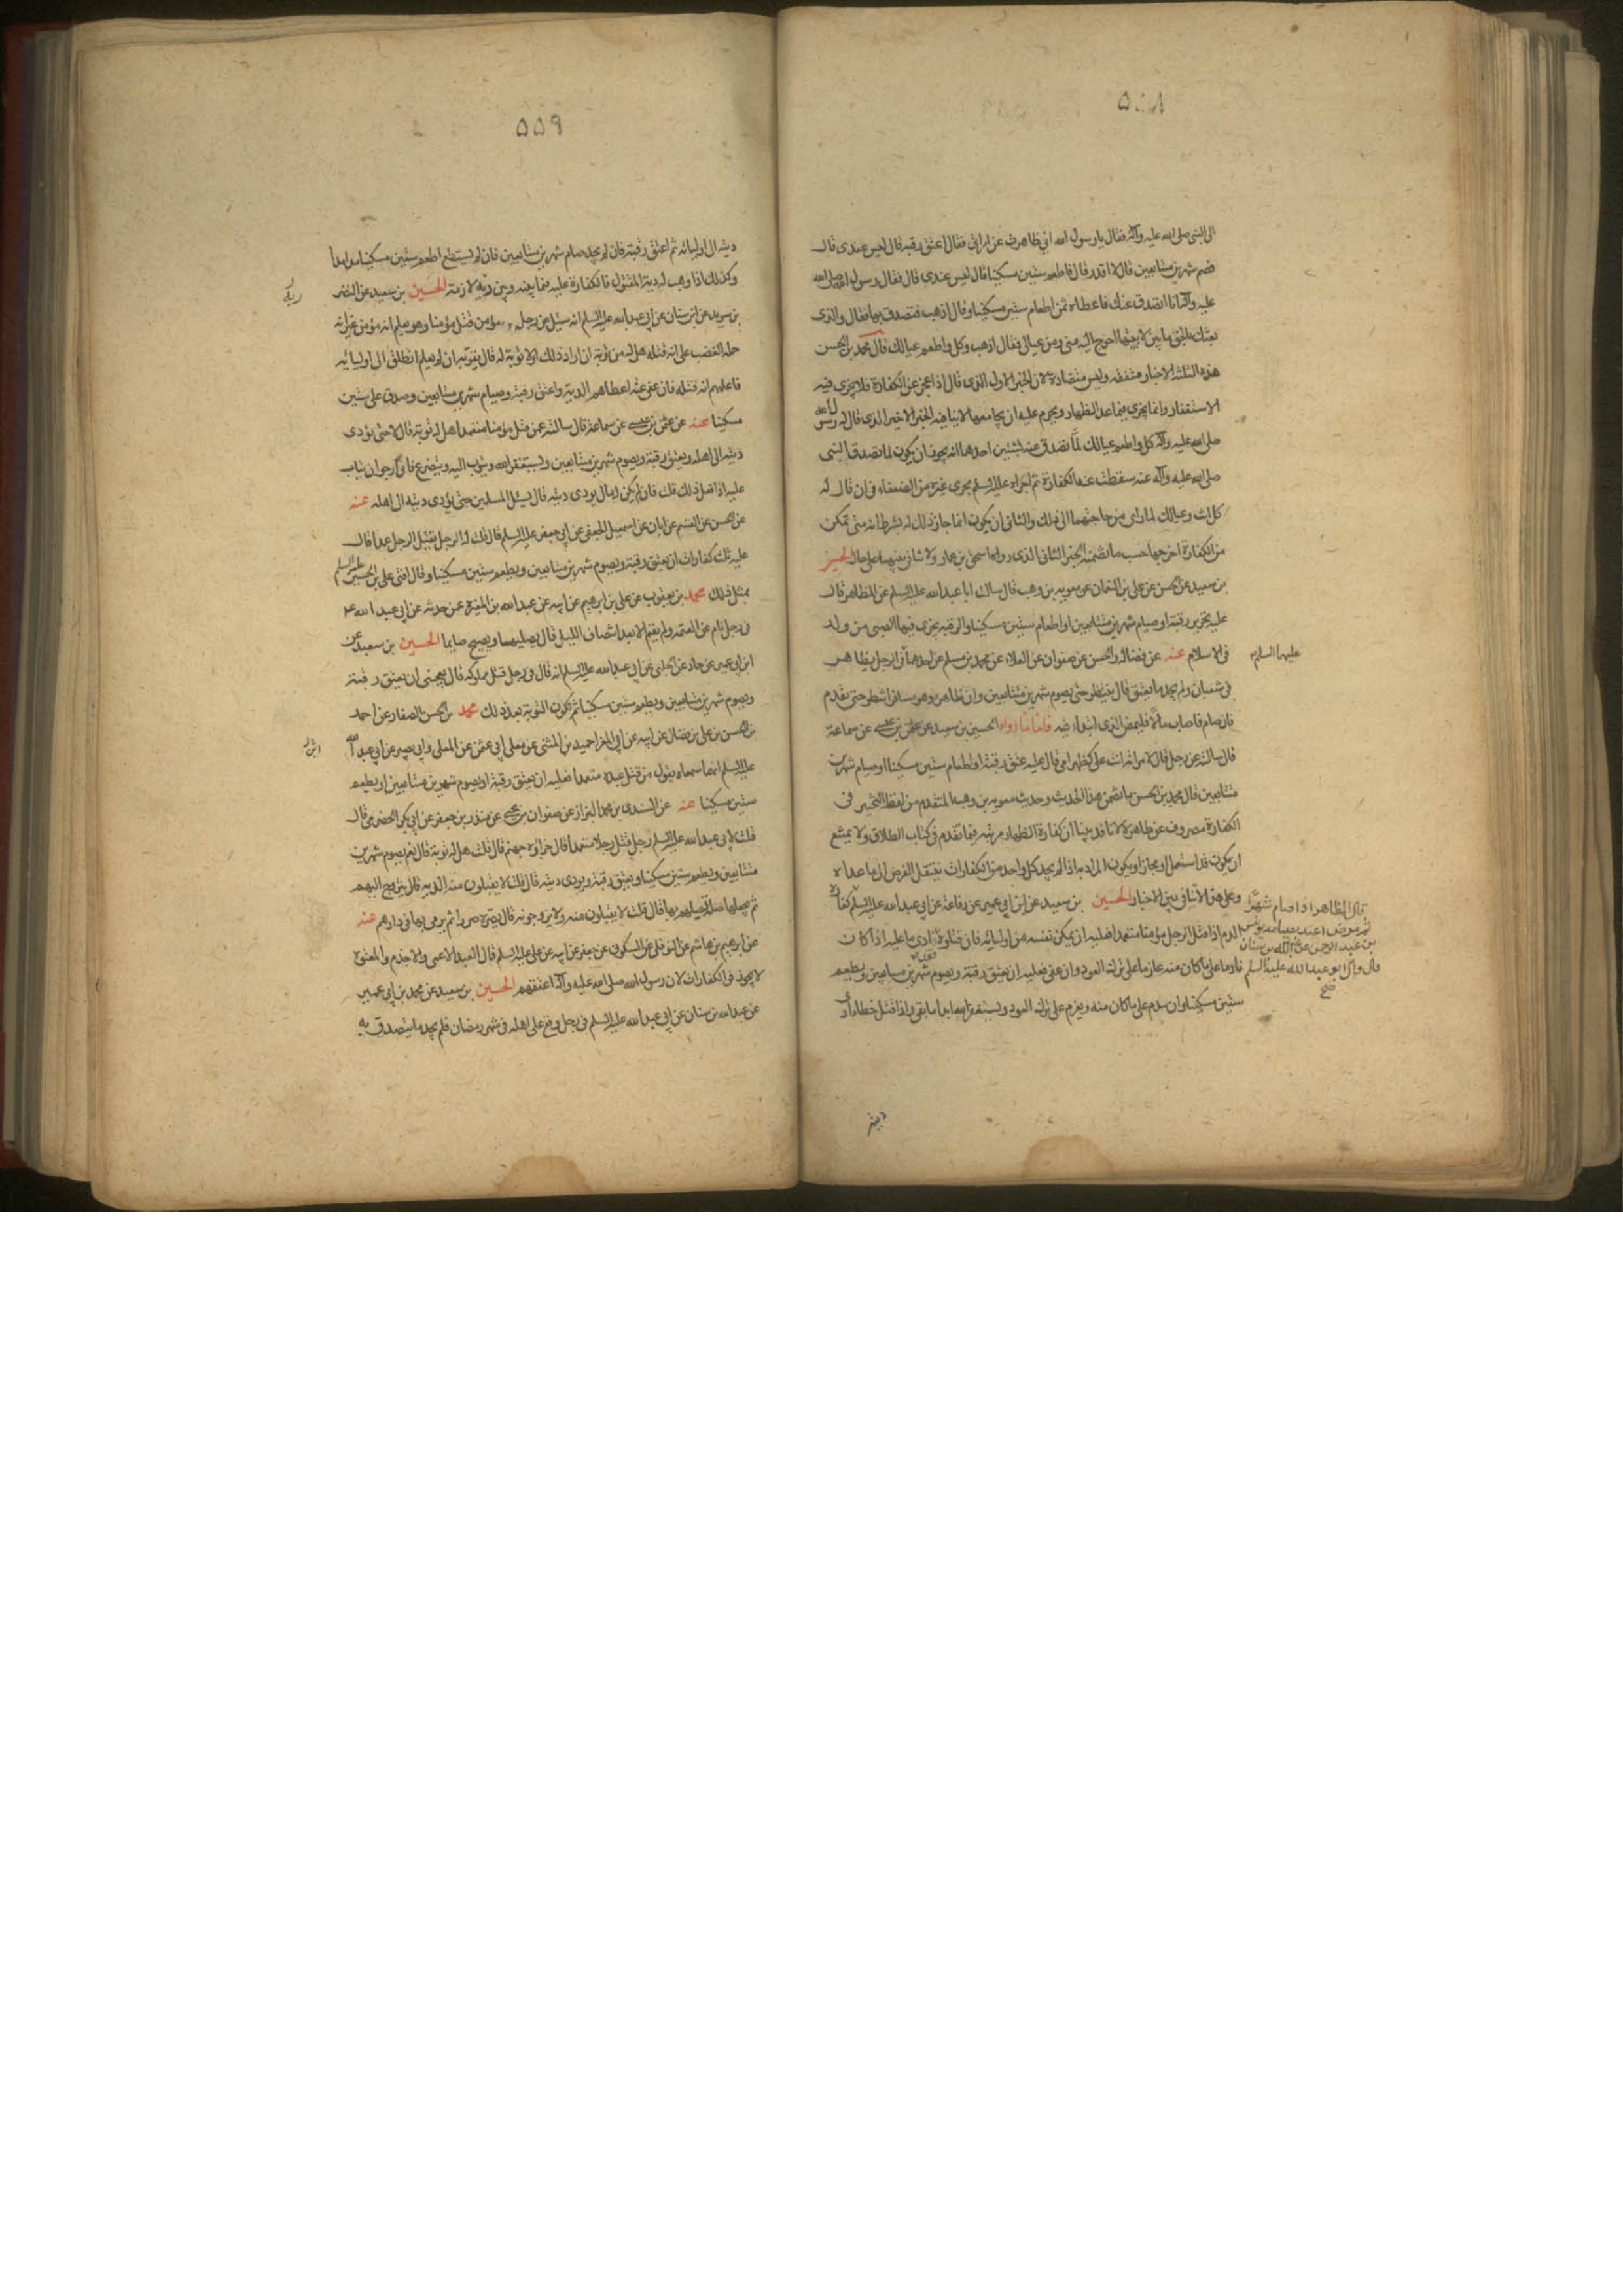 ٥٥٨
الى النبي صلى الله عليه وآله فقال يا رسول الله اني ظاهرت عن امراتي فقال اعتق رقبة قال ليس عندى قال
فصم شهرين متتابعين قال لا اقدر قال فاطعم ستين مسكينا قال ليس عندى قال فقال رسول الله صلى الله
عليه وآله انا اتصدق عنك فاعطاه ثمن اطعام ستين مسكينا وقال اذهب فتصدق بهذا فقال والذى
بعثك بالحق ما بين لابتيها احوج اليه منى ومن عيالى فقال اذهب وكل واطعم عيالك قال محمد بن الحسن
هذه الثلثة الاخبار متفقه وليس متضادة لان الخبر الاول الذى قال اذا عجز عن الكفارة فلا يجزى فيه
الاستغفار وانما يجزى فيما عدا الظهار ويحرم عليه ان يجامعها لا ينافيه الخبر الاخير الذى قال له رسول الله
صلى الله عليه وآله كل واطعم عيالك لما تصدق عنه لشيئين احدهما انه يجوز ان يكون لما تصدق النبى
صلى الله عليه وآله عنه سقطت عنه الكفارة ثم اجراه عليه السلم مجرى غيره من الضعفاء فى ان قال له
كل انت وعيالك لما راى من حاجتهما الى ذلك والثانى ان يكون انما جاز ذلك له بشرط انه متى تمكن
من الكفارة اخرجها حسب ما تضمنه الخبر الثانى الذى رواه اسحق بن عمار ولا تنافى بينهما على حال الحسين
بن سعيد عن الحسن عن على بن النعمان عن معويه بن وهب قال سالت ابا عبد الله عليه السلم عن المظاهر قال
عليه تحرير رقبة او صيام شهرين متتابعين او اطعام ستين مسكينا والرقبه يجزى فيها الصبى من ولد
فى الاسلام عنه عن فضالة والحسن عن صفوان عن العلاء عن محمد بن مسلم عن احدهما فى الرجل يظاهر
عليهما السلم
فى شعبان ولم يجد ما يعتق قال ينتظر حتى يصوم شهرين متتابعين وان ظاهر وهو مسافر انتظر حتى يقدم
فان صام فاصاب مالا فليمض الذى ابتدا فيه فاما ما رواه الحسين بن سعيد عن عثمن بن عيسى عن سماعة
قال سالته عن رجل قال لامراته انت على كظهر امى قال عليه عتق رقبة او اطعام ستين مسكينا او صيام شهرين
متتابعين قال محمد بن الحسن ما تضمن هذا الحديث وحديث معويه بن وهب المتقدم من لفظ التخيير فى
الكفارة مصروف عن ظاهره لانا قد بينا ان كفارة الظهار مرتبة فيما تقدم فى كتاب الطلاق ولا يمتنع
ان يكون قد استعمل او مجازا ويكون المراد به اذا لم يجد كل واحد من الكفارات ينتقل الفرض الى ما عداه
وعلى هذا لا تنافى بين الاخبار الحسين بن سعيد عن ابن ابى عمير عن رفاعة عن ابى عبد الله عليه السلم كفارة
الدم اذا قتل الرجل مؤمنا متعمدا فعليه ان يمكن نفسه من اوليائه فان قتلوه فقد ادى ما عليه اذا كان
نادما على ما كان منه عازما على ترك العود وان عفى فعليه ان يعتق رقبة ويصوم شهرين متتابعين ويطعم
ستين مسكينا وان يندم على ما كان منه ويعزم على ترك العود ويستغفر الله ابدا ما بقى واذا قتل خطاء ادى
قال المظاهر اذا صام شهرا
ثم مرض اعتد بصيامه يونس
بن عبد الرحمن عن عبد الله بن سنان
قال قال ابو عبد الله عليه السلم
صح
ديته
٥٥٩
ديته الى اوليائه ثم اعتق رقبة فان لم يجد صام شهرين متتابعين فان لم يستطع اطعم ستين مسكينا مدا مدا
وكذلك اذا وهب له دية المقتول فالكفارة عليه فيما بينه وبين ربه لازمة الحسين بن سعيد عن النضر
ربه
بن سويد عن ابن سنان عن ابى عبد الله عليه السلم انه سئل عن رجل مؤمن قتل مؤمنا وهو يعلم انه مؤمن غير انه
حمله الغضب على انه قتله هل له من توبة ان اراد ذلك او لا توبة له قال يقر به ان لم يعلم انطلق الى اوليائه
فاعلمهم انه قتله فان عفى عنه اعطاهم الدية واعتق رقبة وصيام شهرين متتابعين وصدق على ستين
مسكينا عنه عن عثمن بن عيسى عن سماعة قال سالته عمن قتل مؤمنا متعمدا هل له توبة قال لا حتى يؤدى
ديته الى اهله ويعتق رقبة ويصوم شهرين متتابعين ويستغفر الله ويتوب اليه ويتضرع فانى ارجو ان يتاب
عليه اذا فعل ذلك قلت فان لم يكن له مال يودى ديته قال يسئل المسلمين حتى يؤدى ديته الى اهله عنه
عن الحسن عن القسم عن ابان عن اسمعيل الجعفى عن ابى جعفر عليه السلم قال قلت له الرجل يقتل الرجل عمدا قال
عليه ثلث كفارات ان يعتق رقبة ويصوم شهرين متتابعين ويطعم ستين مسكينا وقال افتى على بن الحسين عليه السلم
بمثل ذلك محمد بن يعقوب عن على بن ابرهيم عن ابيه عن عبد الله بن المغيرة عمن حدثه عن ابى عبد الله ع
فى رجل نام عن العتمة ولم يقم الا بعد انتصاف الليل قال يصليها ويصبح صايما الحسين بن سعيد عن
ابن ابى عمير عن حماد عن الحلبى عن ابى عبد الله عليه السلم انه قال فى رجل قتل مملوكه قال يعجبنى ان يعتق رقبة
ويصوم شهرين متتابعين ويطعم ستين مسكينا ثم تكون التوبة بعد ذلك محمد بن الحسن الصفار عن احمد
بن الحسن بن على بن فضال عن ابيه عن ابى المغرا حميد بن المثنى عن معلى ابى عثمن عن المعلى وابى بصير عن ابى عبد الله
عليه السلم انهما سمعاه يقول من قتل عبده متعمدا فعليه ان يعتق رقبة او يصوم شهرين متتابعين او يطعم
ستين مسكينا عنه عن السندى بن محمد البزاز عن صفوان بن يحيى عن منذر بن جيفر عن ابى بكر الحضرمى قال
قلت لابى عبد الله عليه السلم رجل قتل رجلا متعمدا قال جزاؤه جهنم قال قلت هل له توبة قال نعم يصوم شهرين
متتابعين ويطعم ستين مسكينا ويعتق رقبة ويودى ديته قال قلت لا يقبلون منه الدية قال يتزوج اليهم
ثم يجعلها صلة يصلهم بها قال قلت لا يقبلون منه ولا يزوجونه قال يصره صررا ثم يرمى بها فى دارهم عنه
عن ابرهيم بن هاشم عن النوفلى عن السكونى عن جعفر عن ابيه عن على عليه السلم قال العبد الاعمى والاجذم والمعتوه
لا يجوز فى الكفارات لان رسول الله صلى الله عليه وآله اعتقهم الحسين بن سعيد عن محمد بن ابى عمير
عن عبد الله بن سنان عن ابى عبد الله عليه السلم فى رجل وقع على اهله فى شهر رمضان فلم يجد ما يتصدق به